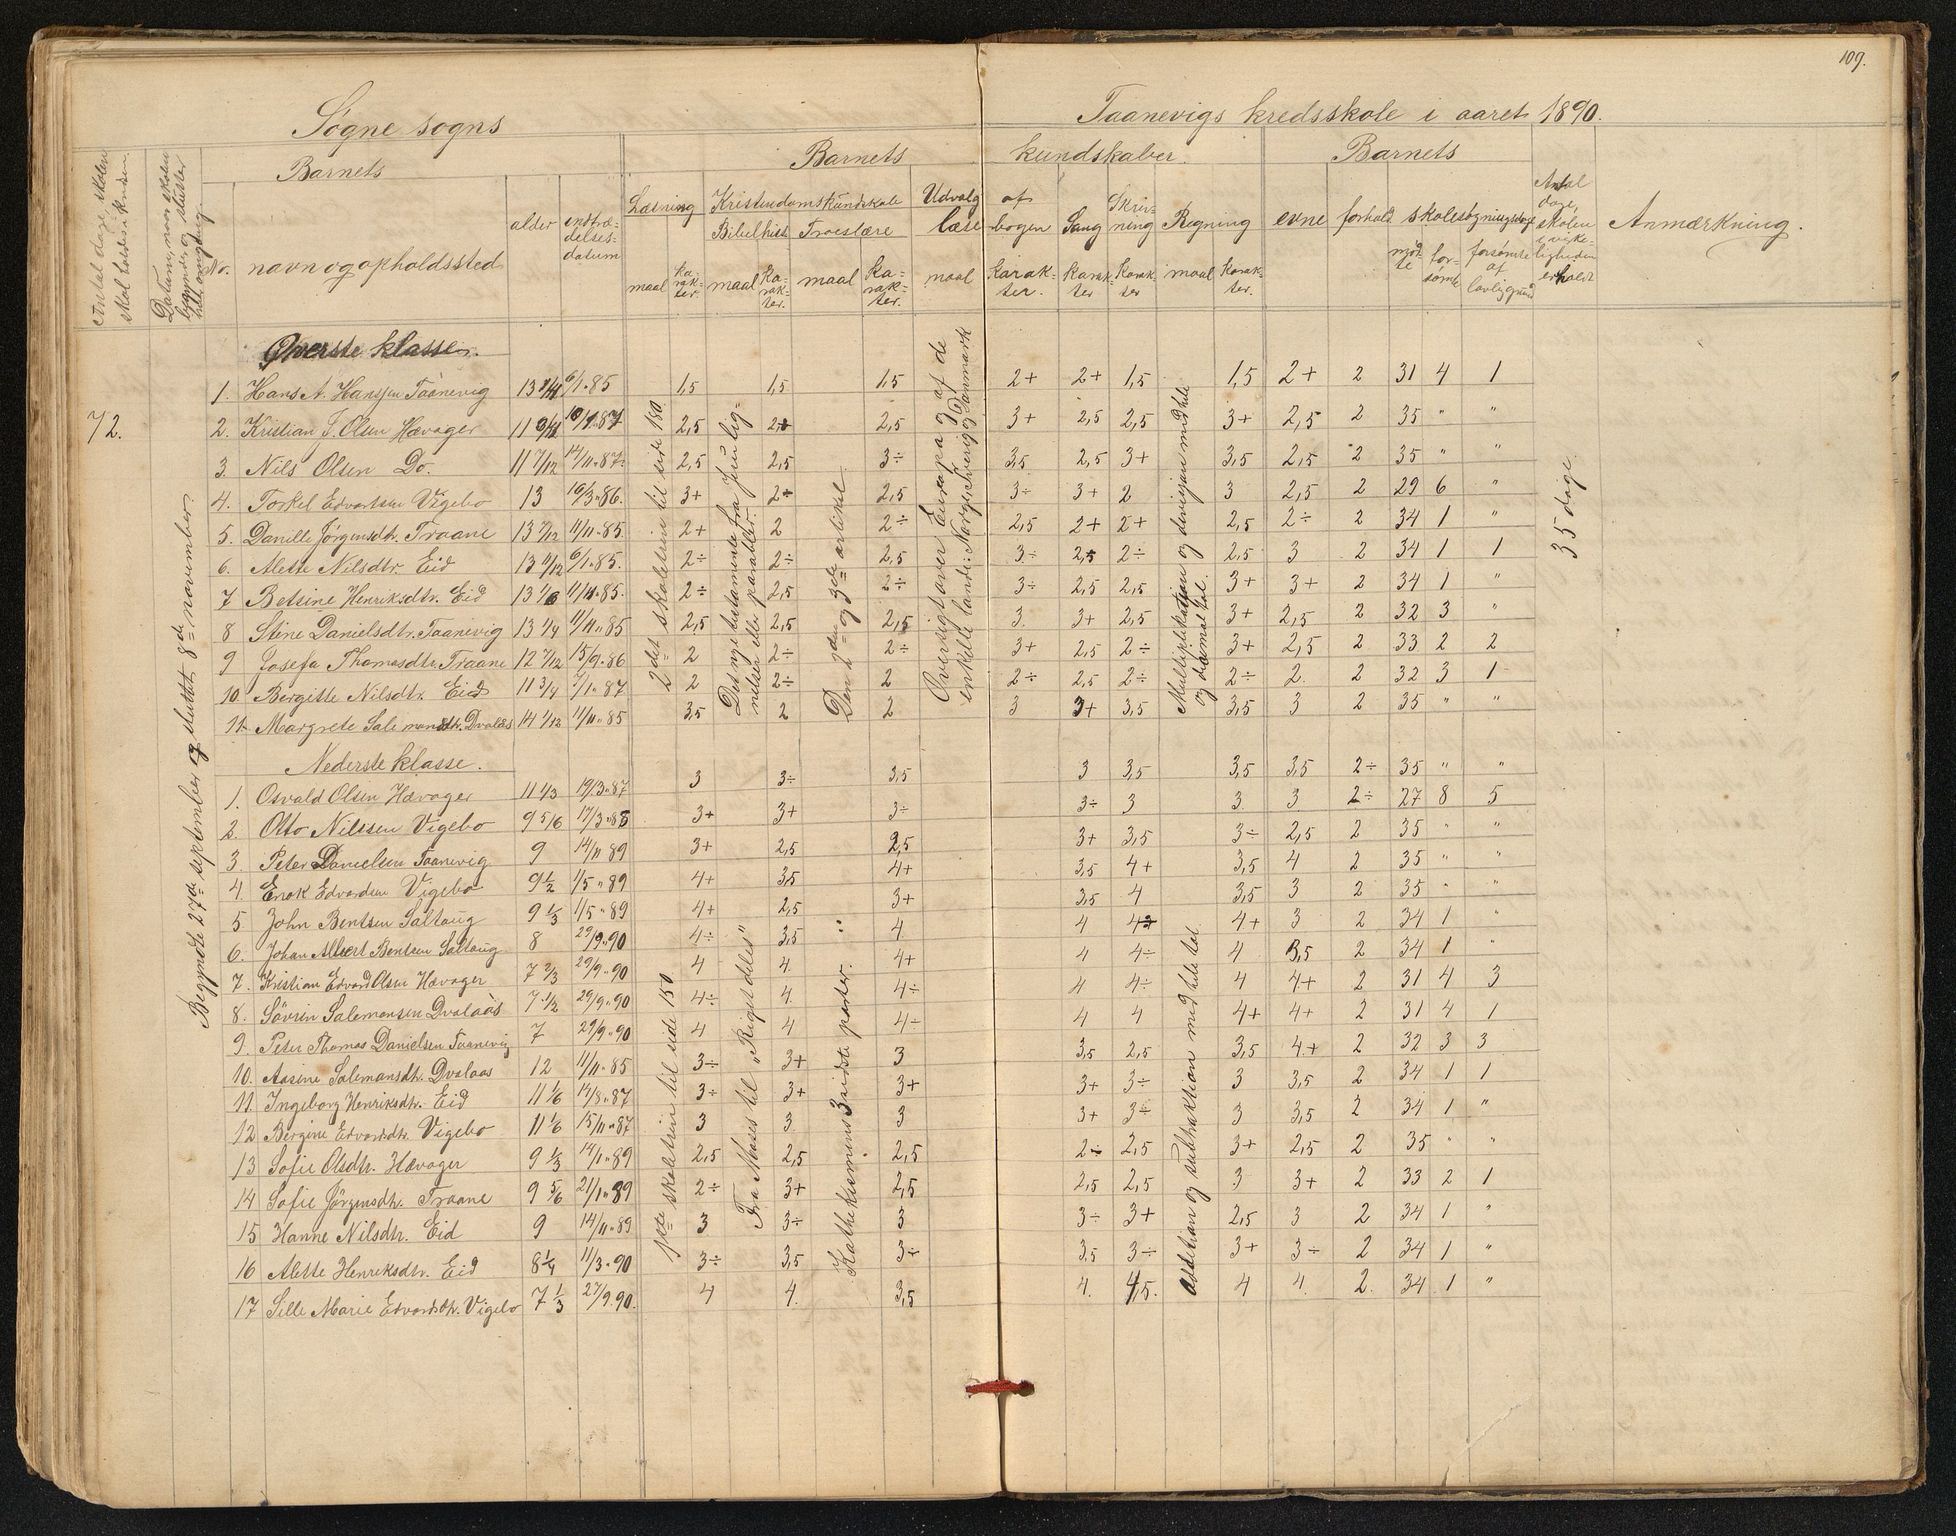 109.
Søgne sogns Taanevigs kredsskole i aaret 1890.
Antal dage, skolen skal holdes i kredsen
Datum, naar skolen begynder og slutter hver omgang.
Barnets
No. navn og opholdssted alder indtrædelses-datum
Barnets kundskaber.
Læsning maal karakter.
Kristendomskundskab
Bibelhist. maal karakter.
Troeslære maal karakter.
Udvalg af læsebogen maal karakter.
Sang karakter
Skrivning karakter
Regning maal karakter.
Barnets
evne forhold skolesøgningsdage
mødte forsømte forsømte af lovlig grund
Antal dage, skolen i virkeligheden er holdt
Anmærkning.
72.
Begyndte 27de september og sluttet 8de november.
Øverste klasse.
2det skoletrin til side 180.
Det nye testamente fra "Jesu lignelser eller parabler.
Den 2den og 3die artikel.
Oversigt over Europa og af de enkelte lande: Norge, Sverig og Danmark
Multiplikation og division med hele og decimal tal.
35 dage.
1. Hans A. Hansen Taanevig 13 3/4 6/1-85 1,5 1,5 1,5 2+ 2+ 1,5 1,5 2+ 2 31 4 1
2. Kristian J. Olsen Hævager 11 3/4 10/1-87 2,5 2+ 2,5 3+ 2,5 2,5 3+ 2,5 2 35 " "
3. Nils Olsen Do. 11 7/12 14/11-87 2,5 2,5 3÷ 3,5 2,5 3+ 3,5 2,5 2 35 " "
4. Torkel Edvartsen Vigebo 13 16/3-86. 3+ 2÷ 2,5 3÷ 3+ 2 3 2,5 2 29 6 "
5. Danille Jørgensdtr. Traane 13 7/12 11/11-85. 2+ 2 2÷ 2,5 2+ 2+ 2,5 2÷ 2 34 1 "
6. Alette Nilsdtr. Eid 13 9/12 6/1-85. 2÷ 2÷ 2,5 3÷ 2,5 2÷ 2,5 3 2 34 1 1
7 Betsine Henriksdtr. Eid 13 1/6 11/11-85. 2÷ 2,5 2÷ 3÷ 2,5 2,5 3+ 3+ 2 34 1 "
8 Stine Danielsdtr. Taanevig 13 1/4 11/11-85 2,5 2,5 2,5 3. 3+ 2,5 3+ 2,5 2 32 3 "
9 Josefa Thomasdtr. Traane 12 7/12 15/9-86 2 2÷ 2÷ 3+ 2,5 2÷ 3+ 2,5 2 33 2 2
10. Bergitte Nilsdtr. Eid 11 3/4 7/1-87 2 2÷ 2 2÷ 2,5 2÷ 2÷ 2. 2 32 3 1
11. Margrete Salemonsdtr. Dvalaas 14 1/12 11/11-85 3,5 2 2 3 3+ 3,5 3,5 3 2 35 " "
Nederste klasse.
1ste skoletrin til side 150
Fra Moses til "Rigets deles"
Kathekismens 3 sidste parter.
Addition og subtraktion med hele tal.
1. Osvald Olsen Hævager 11 1/3 19/3-87 3 3÷ 3,5 3 3,5 3,5 3,5 2÷ 35 " "
2. Otto Nilssen Vigebo 9 5/6 17/3-88 3+ 3+ 3÷ 3÷ 3 3. 3 2÷ 27 8 5
3. Peter Danielsen Taanevig 9 14/11 89 3+ 2,5 2,5 3+ 3,5 3÷ 2,5 2 35 " "
4. Enok Edvardsen Vigebo 9 1/2 1/5-89 4+ 3,5 4+ 3,5 4+ 3,5 4 2 35 " "
5 John Bentsen Saltaug 9 1/3 1/5-89 4+ 2,5 3+ 3,5 4 3,5 3 2 35 " "
6. Johan Albert Bentsen Saltaug 8 29/9-90 4÷ 3,5 4 4 4 4+ 3 2 34 1 "
7. Kristian Edvard Olsen Hævager 7 2/3 29/9-90 4 4. 4+ 4 4÷ 4 3,5 2 34 1 "
8. Sövrin Salemonsen Dvalaas 7 1/2 29/9-90 4÷ 4. 4÷ 4 4÷ 4 4+ 2 31 4 3
9. Peter Thomas Danielsen Taanevig 7 29/9-90 4 4 4÷ 4 4 4+ 4+ 2 31 4 1
10. Aasine Salemonsdtr. Dvalaas 12 11/11-85 3÷ 3+ 3 3,5 2,5 3,5 4+ 2 32 3 3
11. Ingeborg Henriksdtr. Eid 11 1/6 14/8-87 3÷ 3+ 3+ 3+ 3÷ 3 3,5 2 34 1 1
12 Bergine Edvardsdtr. Vigebo 11 1/6 15/11-87 3 3 3 3+ 3÷ 3 3,5 2 34 1 "
13 Sofie Olsdtr. Hævager 9 1/3 14/1-89 2,5 2,5 2,5 2÷ 2,5 3+ 2,5 2 35 " "
14 Sofie Jörgensdtr. Traane 9 5/6 21/1-89 2÷ 3+ 2,5 2,5 2,5 3 3+ 2 33 2 1
15 Hanne Nilsdtr. Eid 9 14/11-89 3 3÷ 3 3÷ 3+ 2,5 3 2 34 1 "
16 Alette Henriksdtr. Eid 8 1/4 11/3-90 3÷ 3,5 3÷ 3,5 3÷ 3+ 3÷ 2 34 1 "
17 Sille Marie Edvardsdtr. Vigebo 7 1/3 27/9.90. 4 4. 3,5 4. 4,5. 4 4. 2. 34 1 "